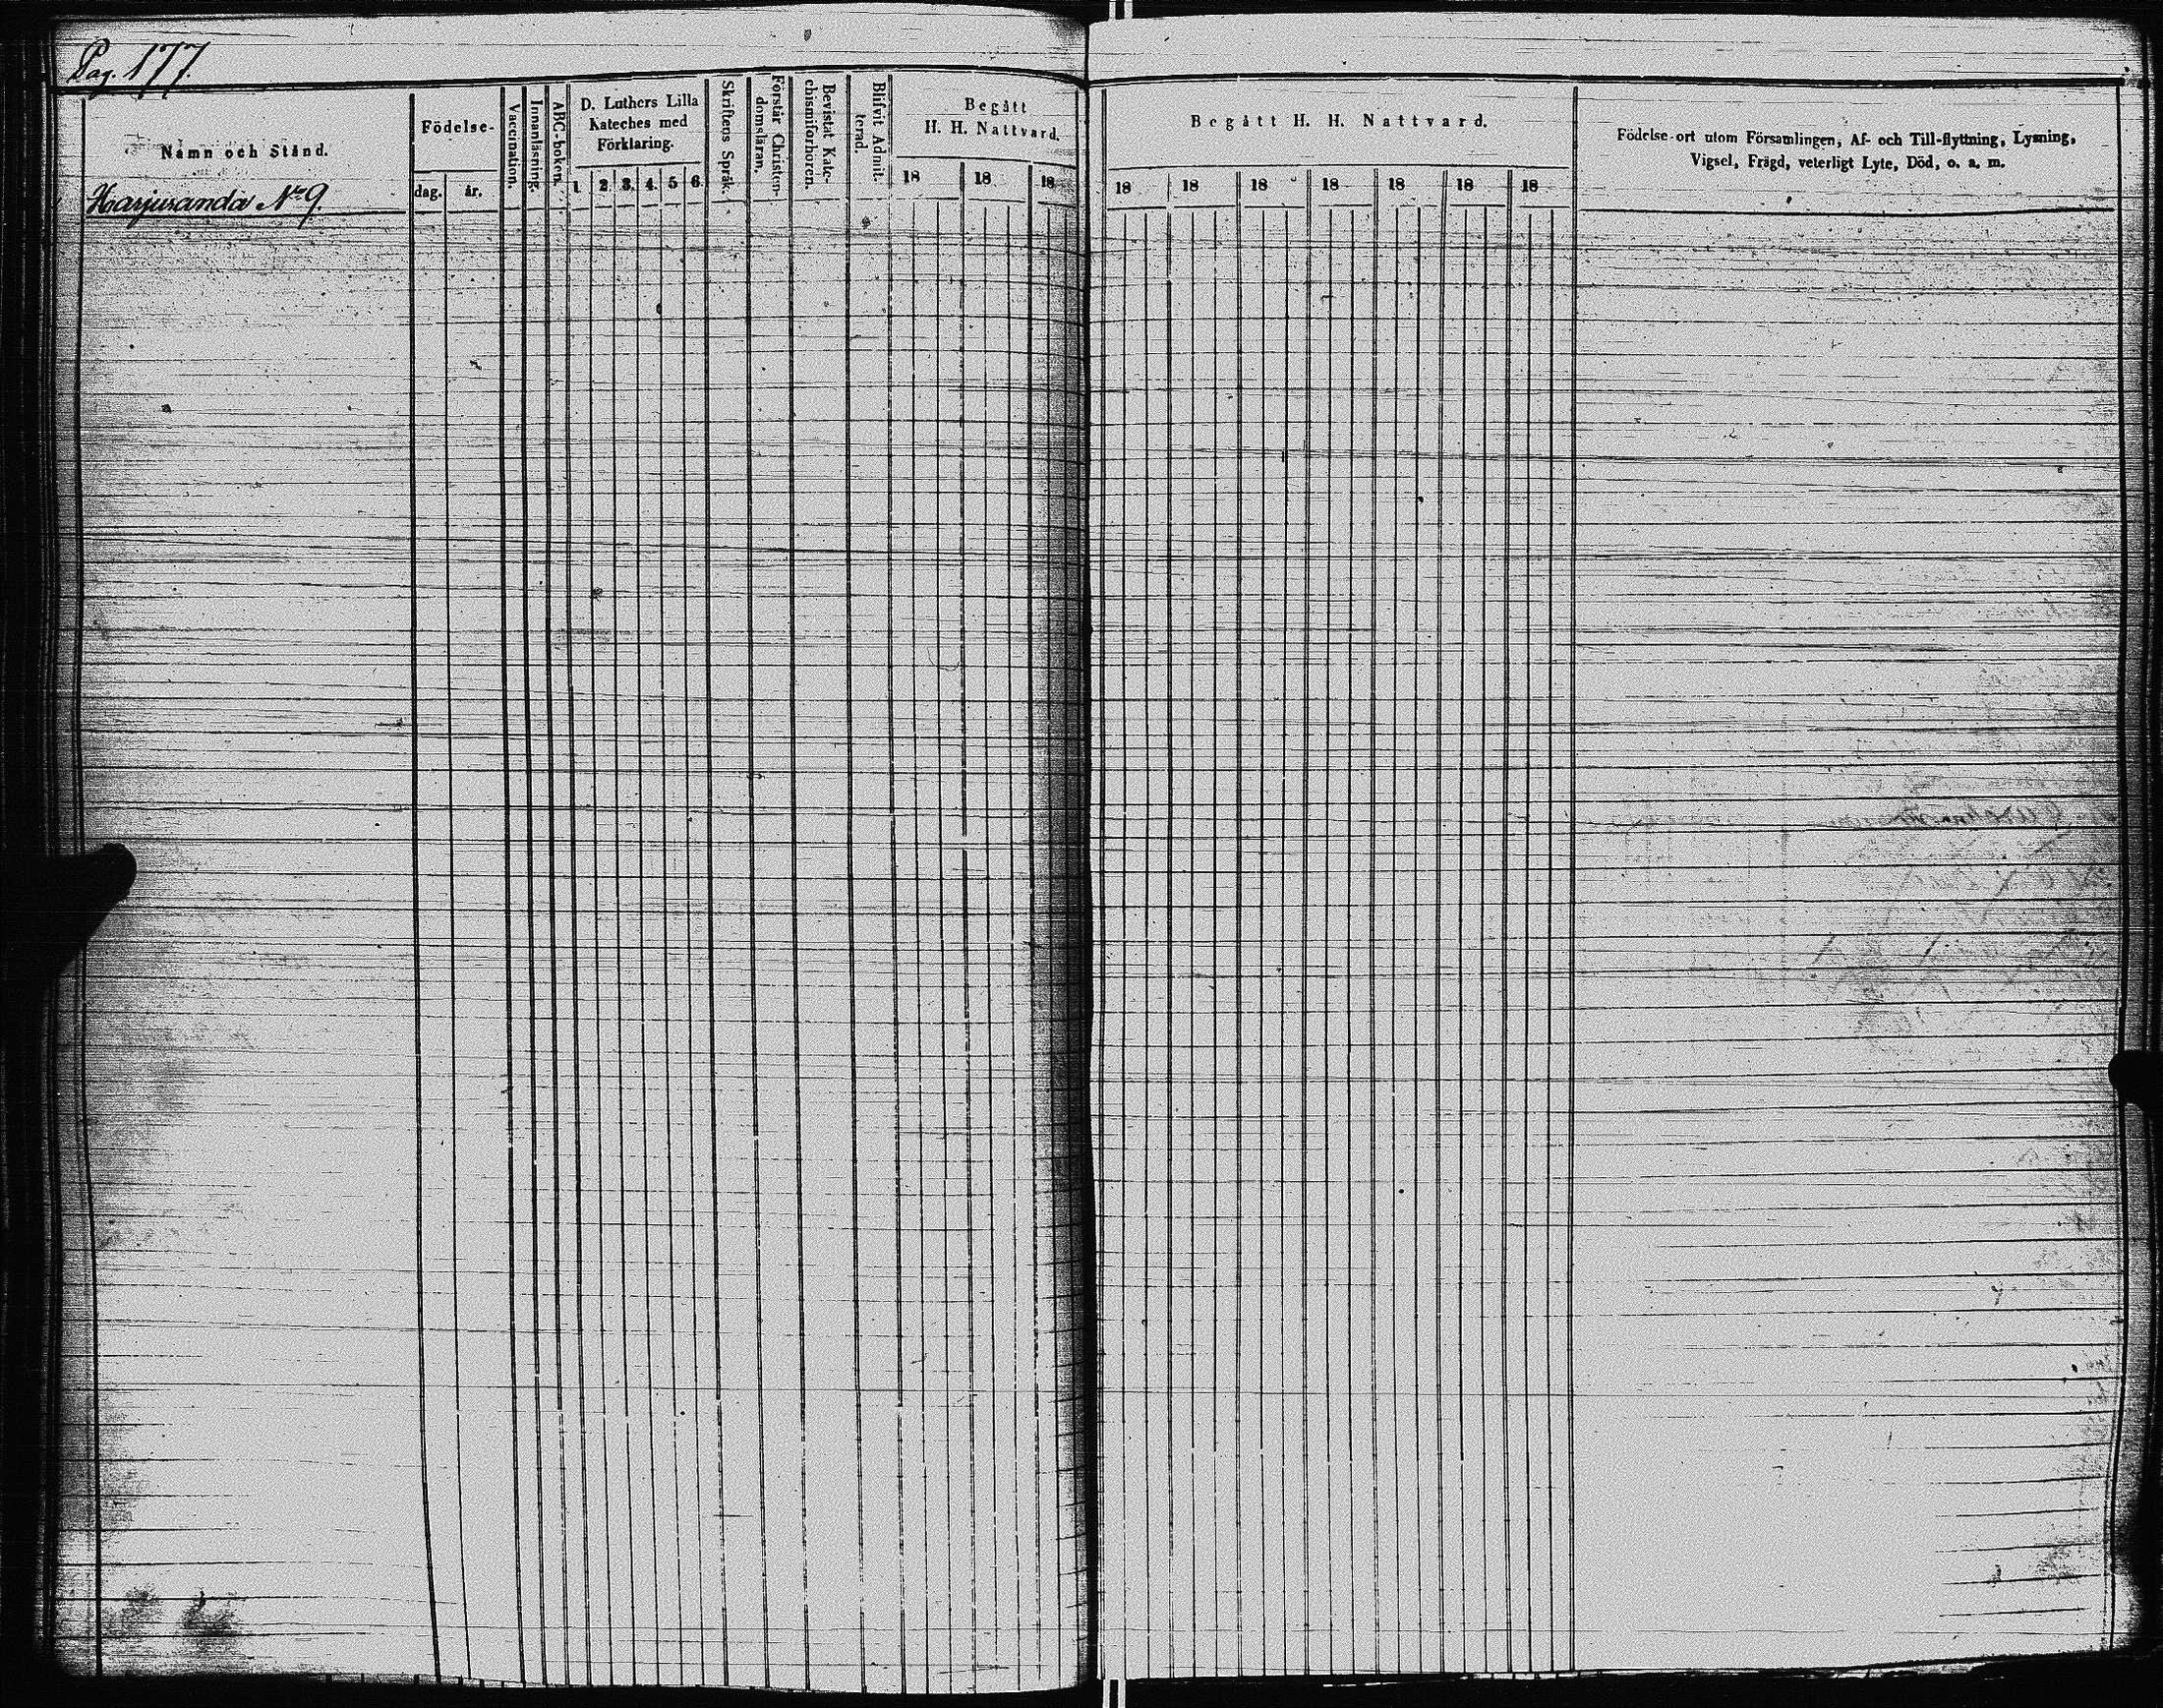 Pag. 177.
Namn och Stånd.
Harjuranda No 9
Födelse-
dag. år.
Vaccination.
Innanläsning.
ABC-boken.
D. Luthers Lilla
Kateches med
Förklaring.
1. 2. 3. 4. 5 6.
Skriftens Språk.
Förstår Christen-
domsläran.
Bevistat Kate-
chismiförhören.
Blifvit Admit-
terad.
Begått
H. H. Nattvard.
18 18 18
Begått H. H. Nattvard.
18 18 18 18 18 18 18
Födelse-ort utom Församlingen, Af- och Till-flyttning, Lysning,
Vigsel, Frägd, veterligt Lyte, Död, o. s. m.